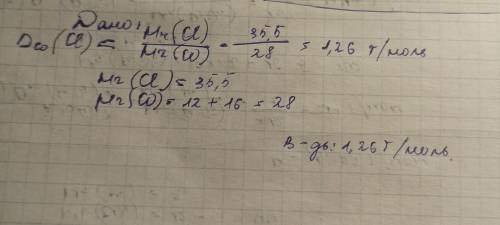 Дано:
Dco(Cl) = Mr(Cl) / Mr(CO) = 35,5 / 28 = 1,26 г/моль
Mr(Cl) = 35,5
Mr(CO) = 12 + 16 = 28
В-дь: 1,26 г/моль.